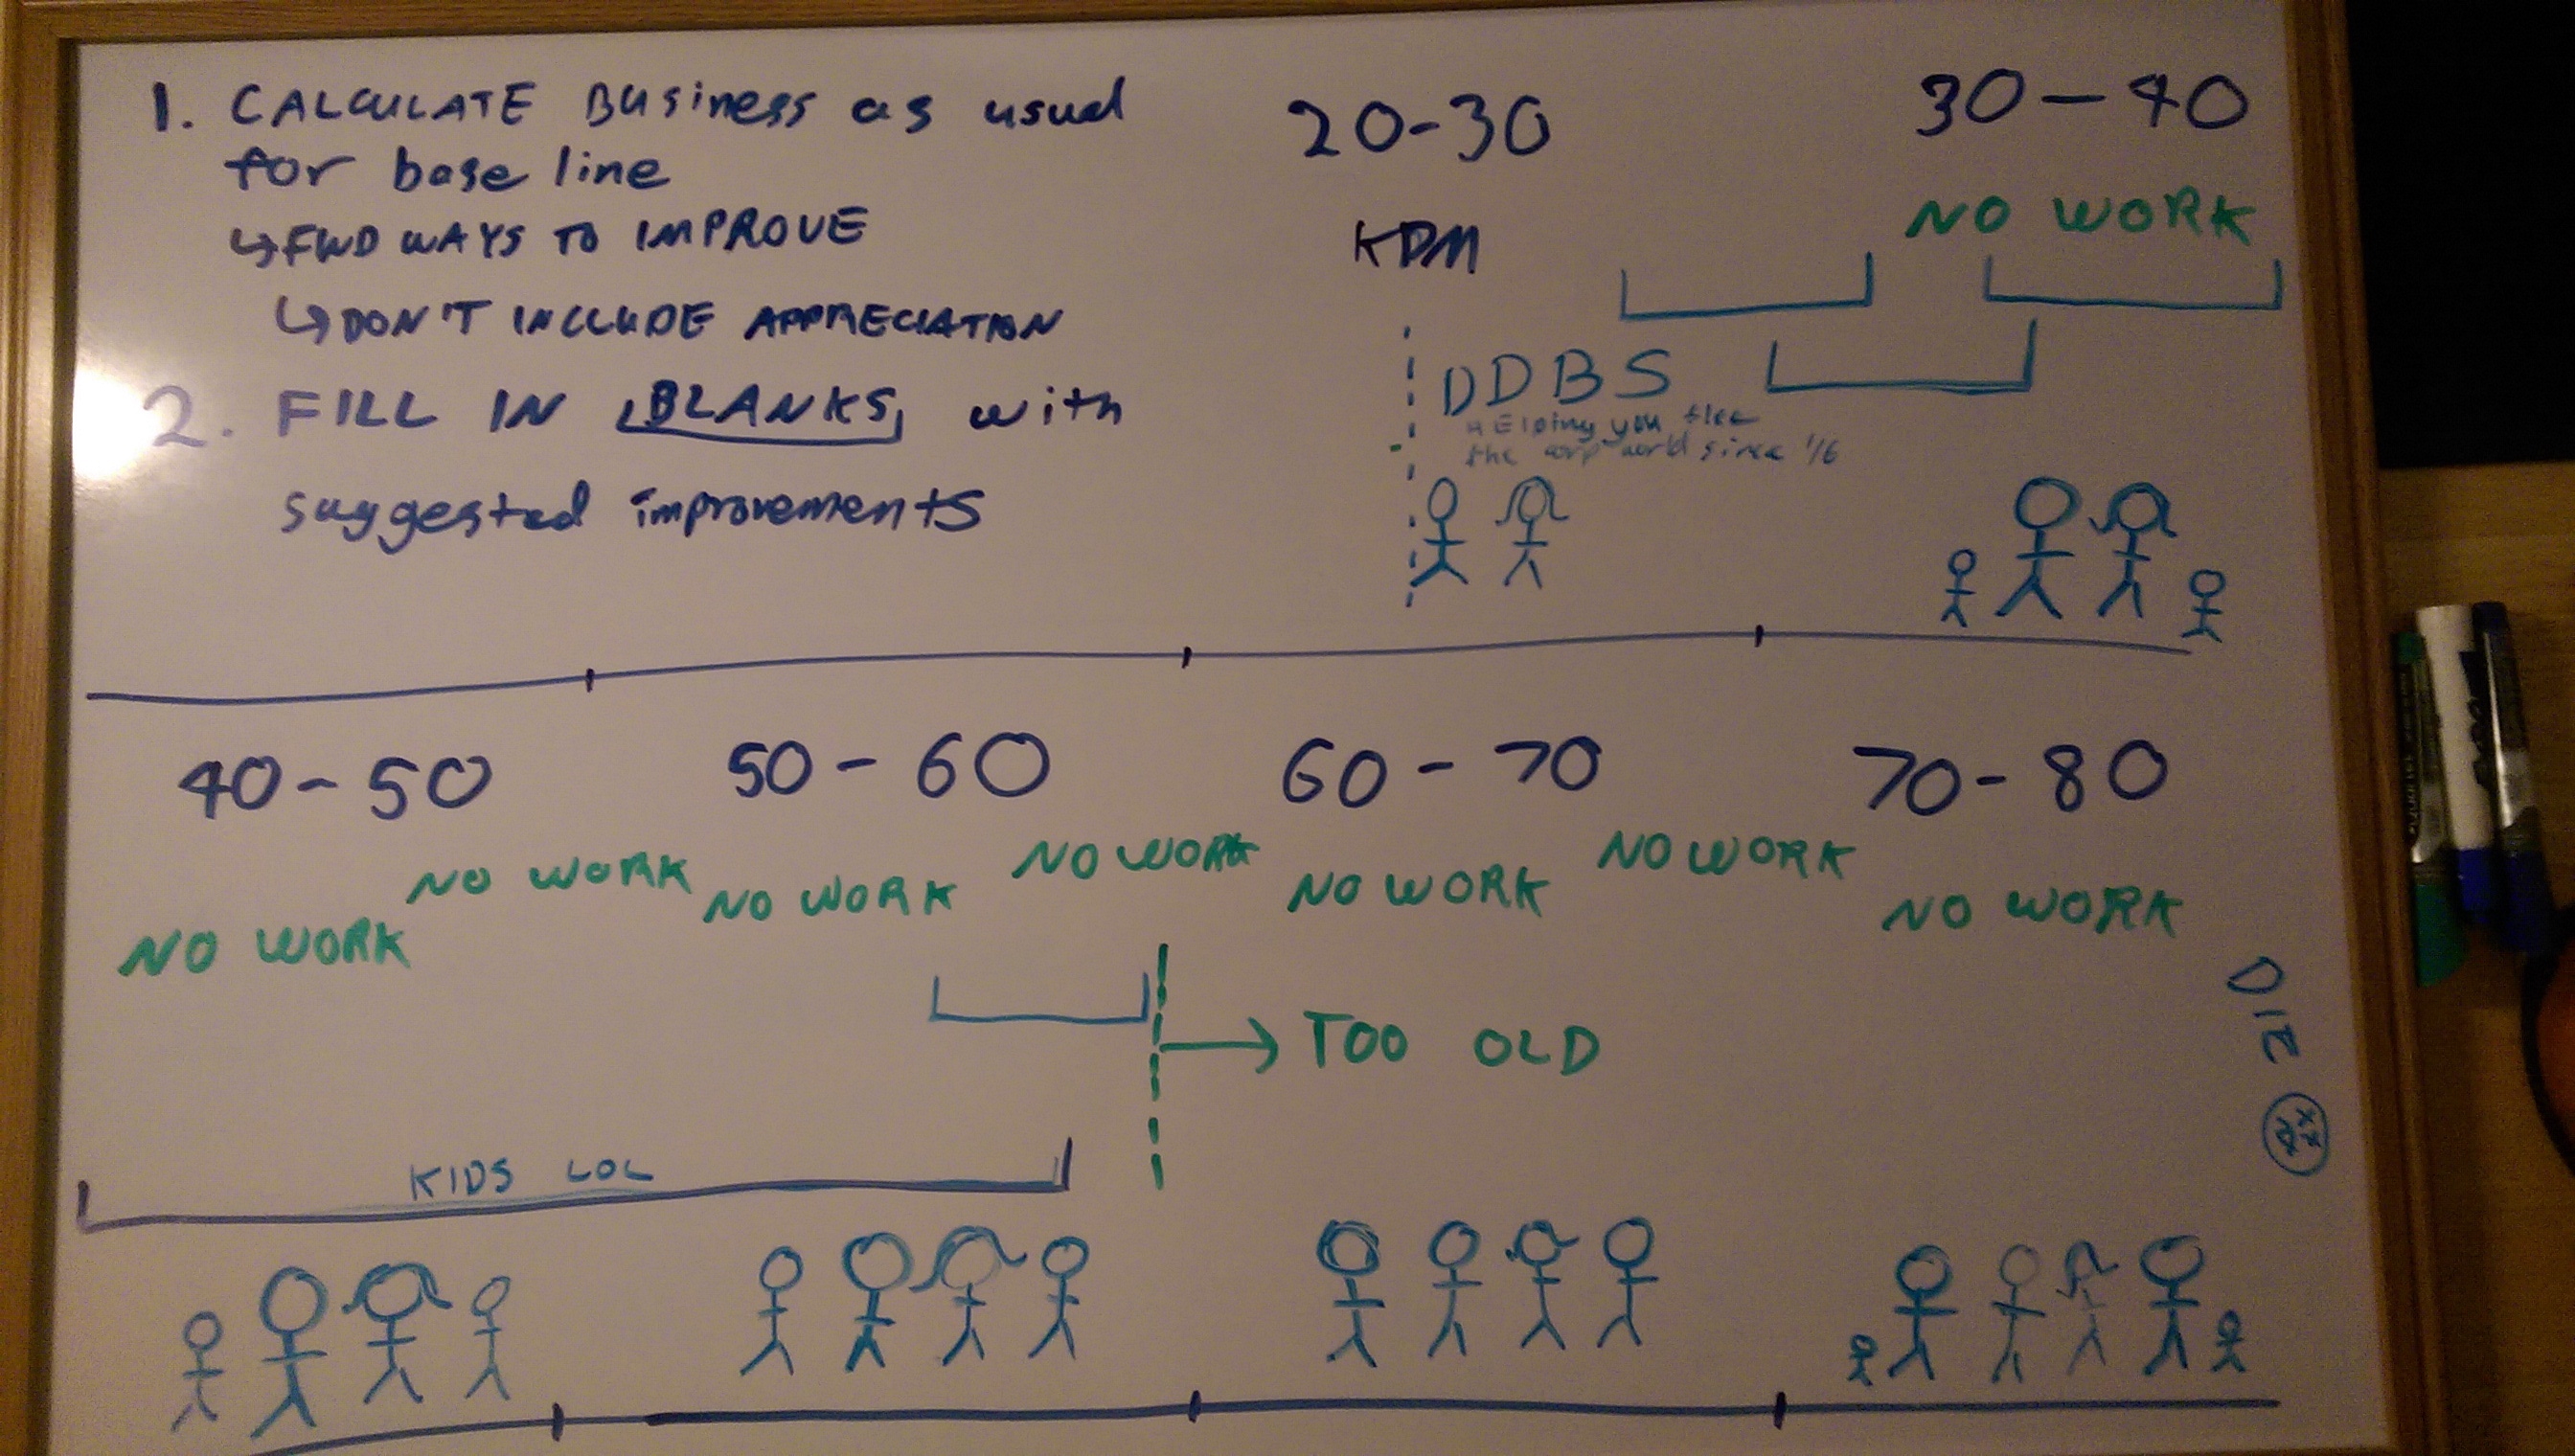 1. CALCULATE Business as usual
for base line
↳ FIND WAYS TO IMPROVE
↳ DON'T INCLUDE APPRECIATION
2. FILL IN BLANKS with
suggested improvements
20-30
KDM
DDBS
HElping you flee
the corp world since 1/6
30-40
NO WORK
40-50
NO WORK
NO WORK
50-60
NO WORK
NO WORK
60-70
NO WORK
NO WORK
70-80
NO WORK
→ TOO OLD
KIDS LOL
DIE